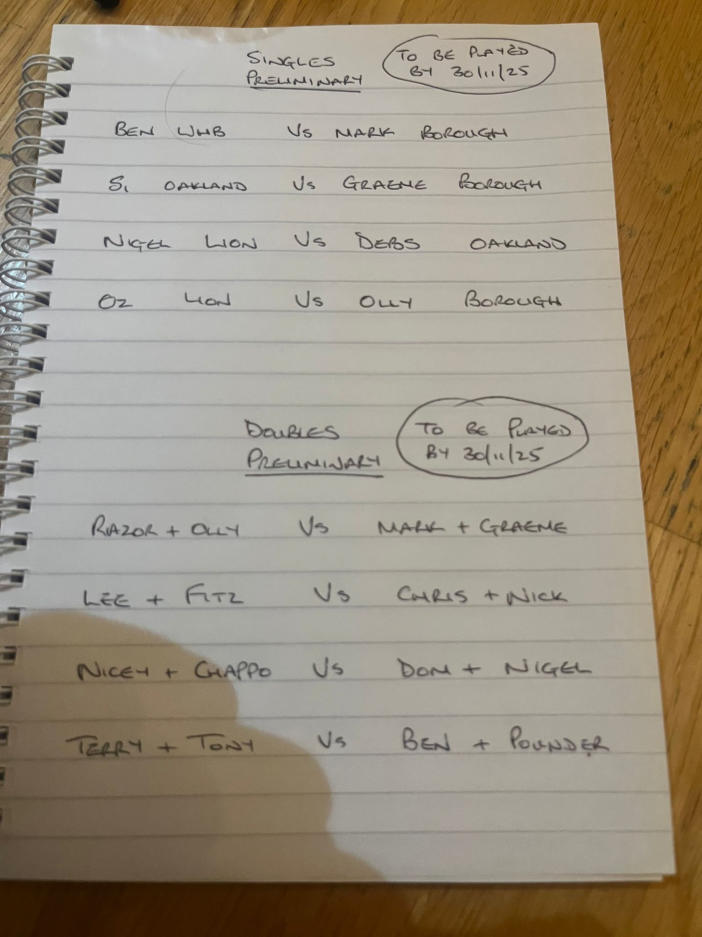 SINGLES
PRELIMINARY
TO BE PLAYED
BY 30/11/25
BEN WHB VS MARK BOROUGH
SI OAKLAND VS GRAEME BOROUGH
NIGEL LION VS DEBS OAKLAND
OZ LION VS OLLY BOROUGH
DOUBLES
PRELIMINARY
TO BE PLAYED
BY 30/11/25
RAZOR + OLLY VS MARK + GRAEME
LEE + FITZ VS CHRIS + NICK
NICEY + CHAPPO VS DOM + NIGEL
TERRY + TONY VS BEN + POUNDER